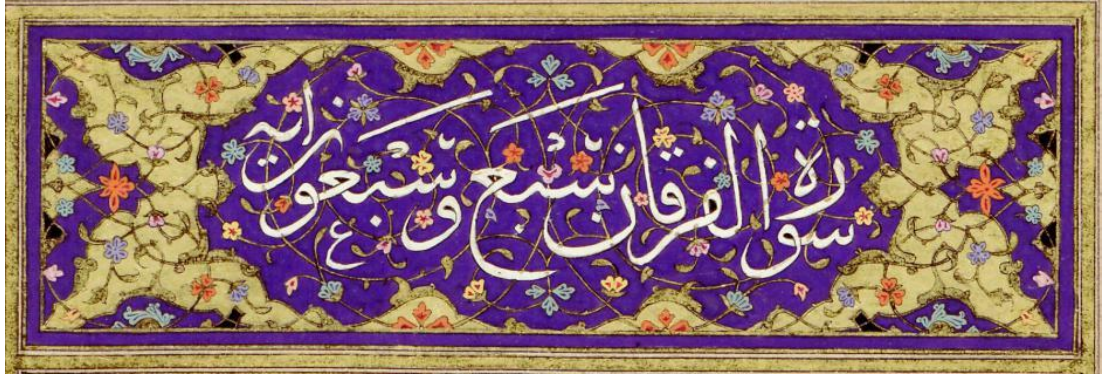 سورة الفرقان سبع وّسبعون اية